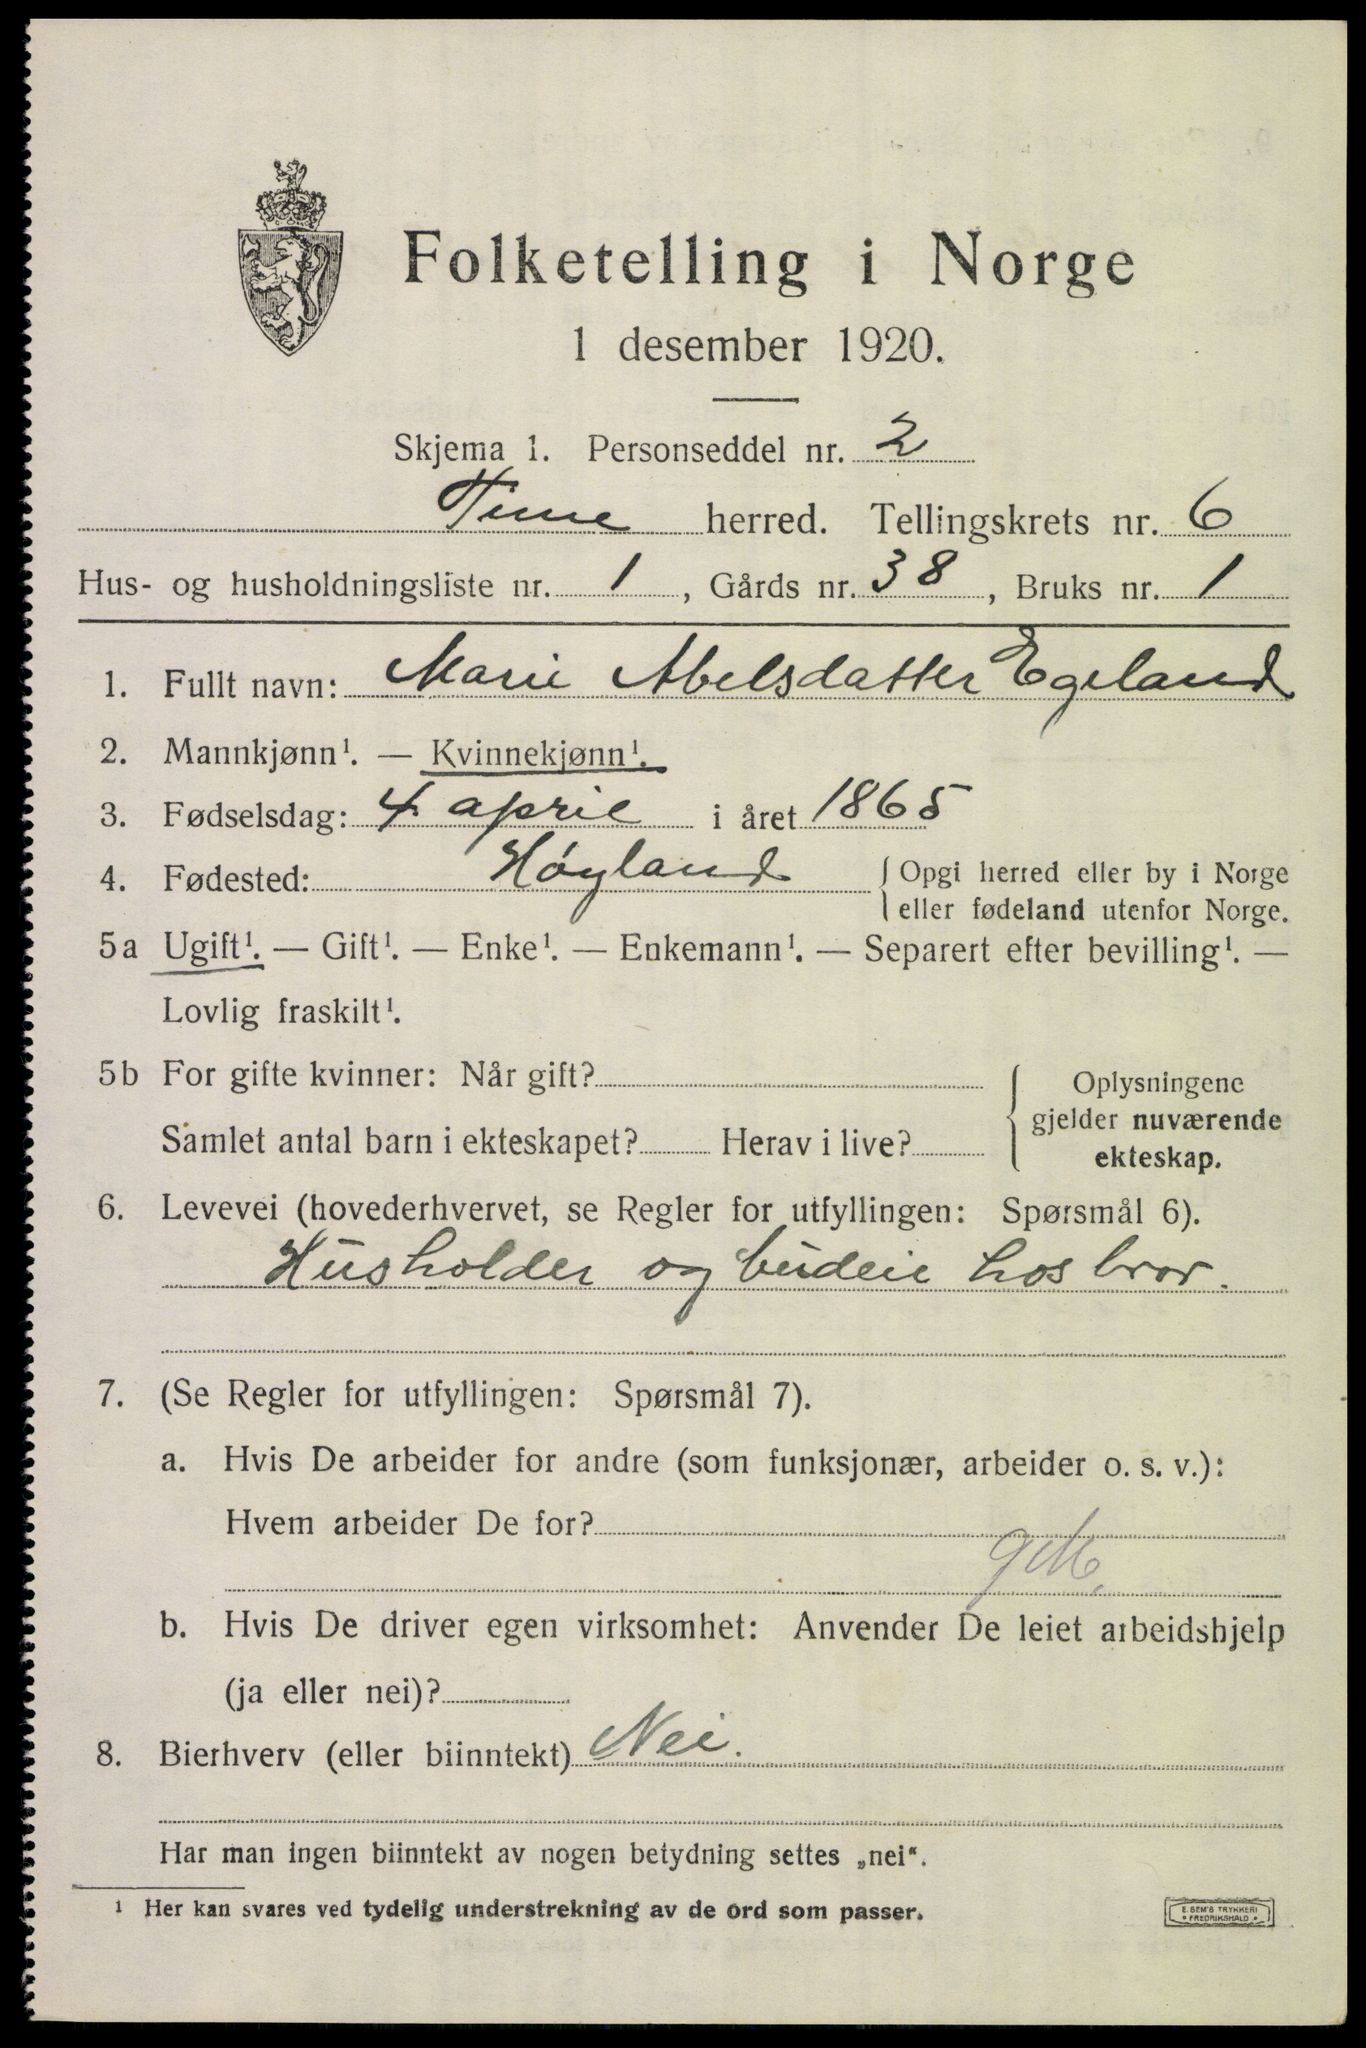 Folketelling i Norge
1 desember 1920.
Skjema 1. Personseddel nr. 2
Time herred. Tellingskrets nr. 6
Hus- og husholdningsliste nr. 1, Gårds nr. 38, Bruks nr. 1
1. Fullt navn: Marie Abelsdatter Egeland
2. Mannkjønn¹. — Kvinnekjønn¹.
3. Fødselsdag: 4 april i året 1865
4. Fødested: Høyland { Opgi herred eller by i Norge
eller fødeland utenfor Norge.
5a Ugift¹. — Gift¹. — Enke¹. — Enkemann¹. — Separert efter bevilling¹. —
Lovlig fraskilt¹.
5b For gifte kvinner: Når gift?
Samlet antal barn i ekteskapet? Herav i live?
Oplysningene
gjelder nuværende
ekteskap.
6. Levevei (hovederhvervet, se Regler for utfyllingen: Spørsmål 6).
Husholder og budeie hos bror.
7. (Se Regler for utfyllingen: Spørsmål 7).
a. Hvis De arbeider for andre (som funksjonær, arbeider o. s. v.):
Hvem arbeider De for?
b. Hvis De driver egen virksomhet: Anvender De leiet arbeidshjelp
(ja eller nei)?
8. Bierhverv (eller biinntekt) Nei.
Har man ingen biinntekt av nogen betydning settes „nei“.
¹ Her kan svares ved tydelig understrekning av de ord som passer.
E. SEM'S TRYKKERI
• FREDRIKSHALD •